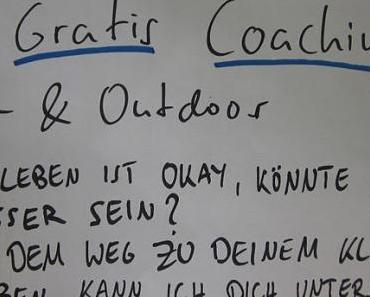 Gratis Coachin
- & Outdoor
LEBEN IST OKAY, KÖNNTE
SSER SEIN?
DEM WEG ZU DEINEM KL
BEN KANN ICH DICH UNTER